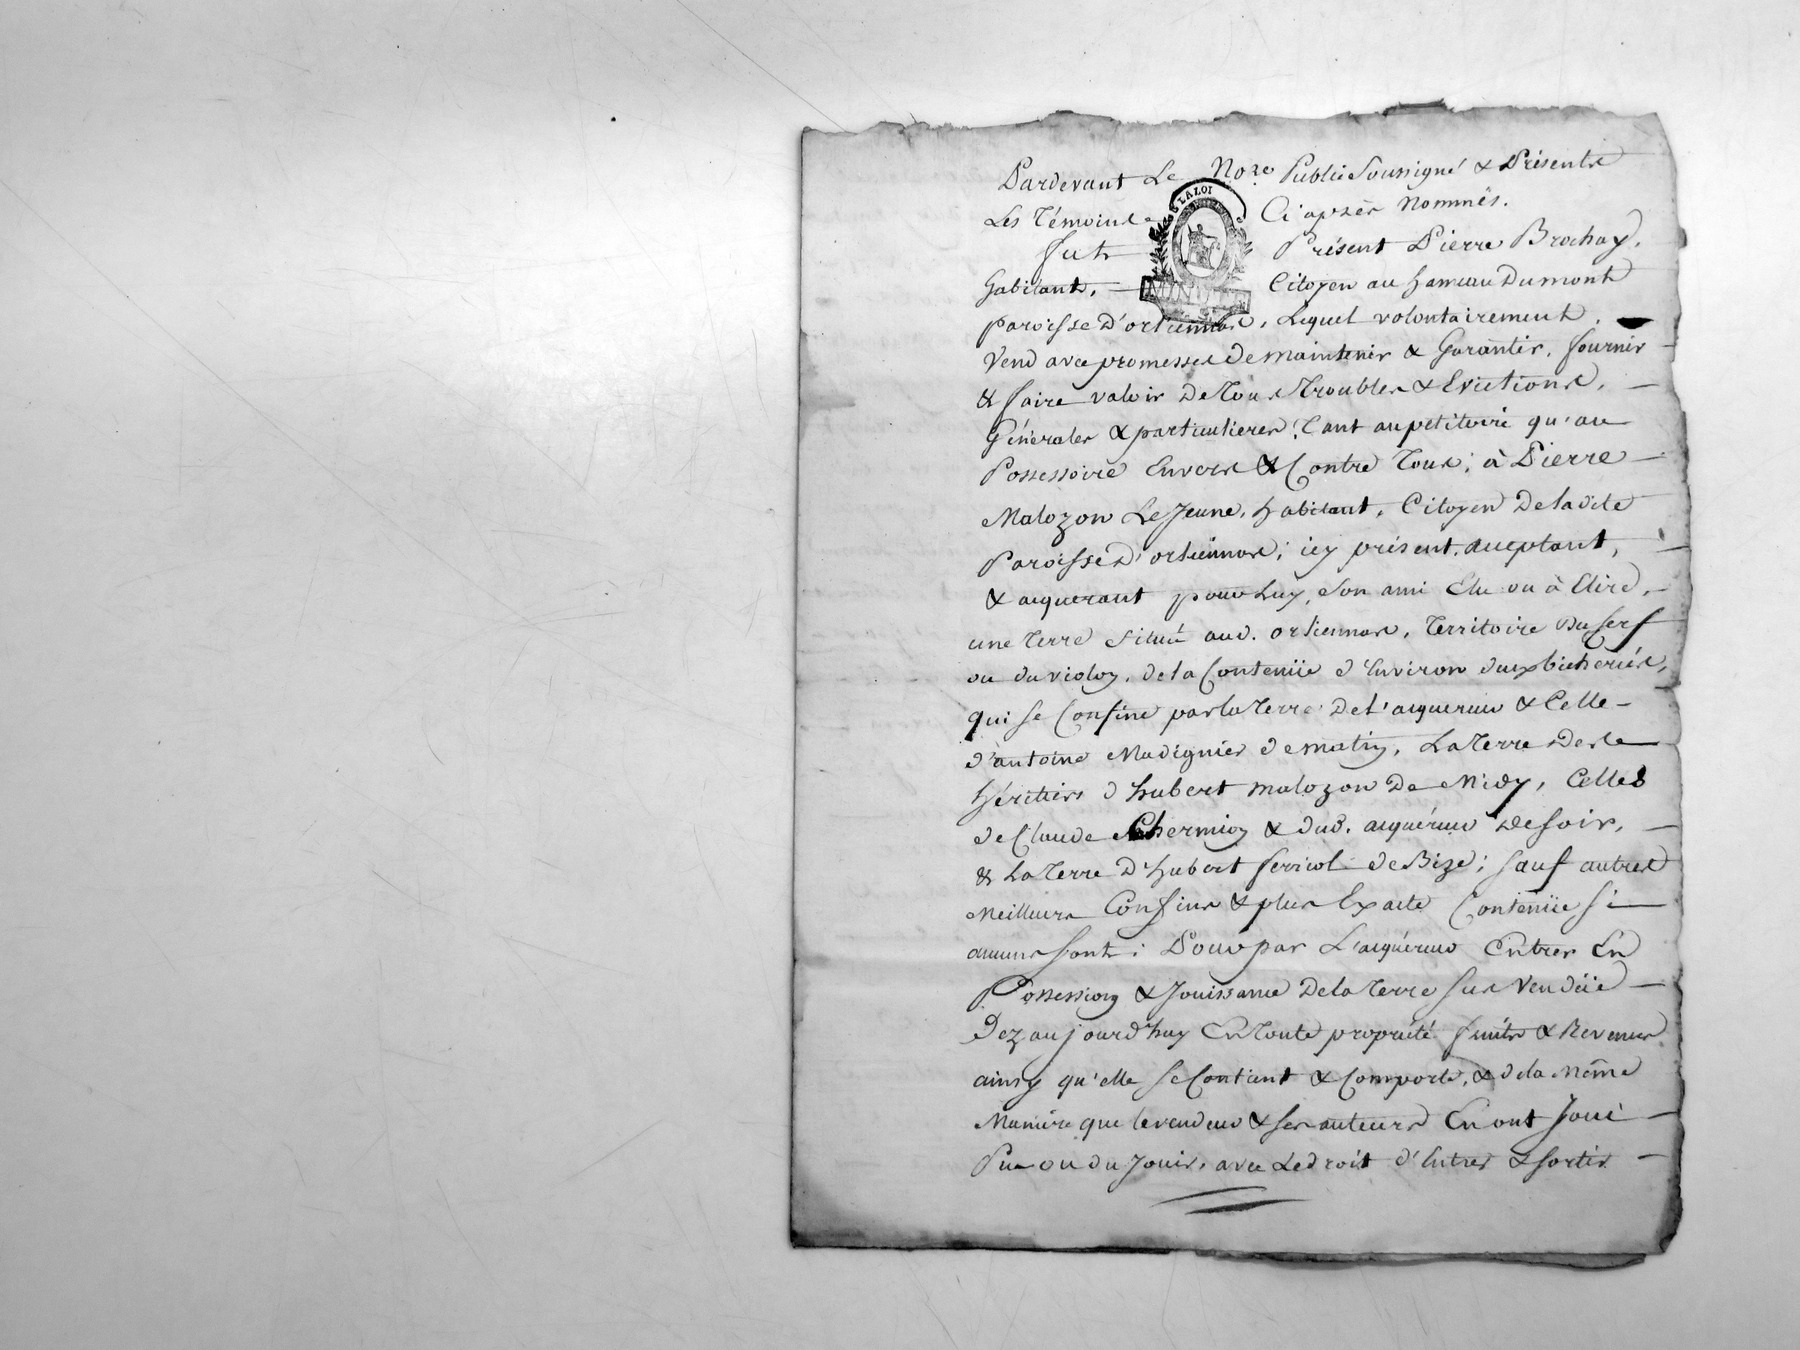 Pardevant Le No.re Public Soussigné & Présents
LA LOI
Les Témoins Ci'après Nommés.
fut Présent Pierre Brochay,
MINUTE
habitant, Citoyen au hameau Dumont
paroisse D'orliennas, Lequel volontairement
Vend avec promesses de maintenir & Garantir, fournir
& faire valoir De Tous Troubles & Evictions,
Générales & particulieres, Tant au petitoire qu'au
Possessoire Envers & Contre Tous; à Pierre
Malozon Le Jeune, habitant, Citoyen De ladite
Paroisse D'orliennas; icy présent, acceptant,
& aiquerant pour Luy, Son ami Elu ou à Elire,
une Terre Située aud. orliennas, Territoire Du Cerf
ou du violoy, de la Contenüe d'Environ deux bicherées,
qui se Confine par la Terre De L'aiquereur & Celle
d'antoine Madignier de matin, La Terre Des
héritiers d'hubert malozon De Midy, Celles
de Claude Chermioy & dud. aiquéreur De Soir,
& La Terre D'hubert ferriol de Bize; Sauf autres
Meilleurs Confins & plus Exacte Contenüe Si
aucuns Sont; Pour par L'aiquéreur Entrer En
Possession & Jouissance De la Terre Sus Vendüe
Dez aujourd'huy En Toute propriété fruits & Revenus
ainsy qu'elle Se Contient & Comporte, & de la Même
Maniére que le vendeur & Ses auteurs En ont Joui
Pu ou du Jouir, avec Le droit d'Entrer & Sortir